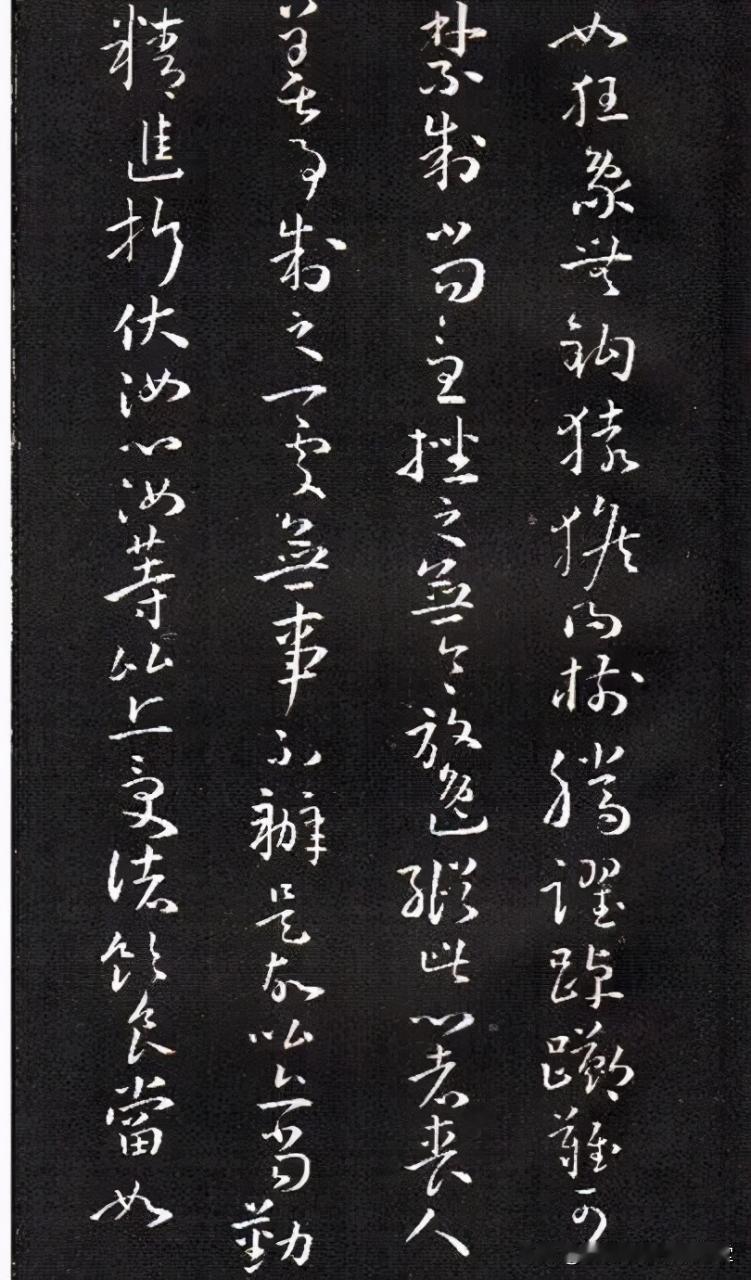 如狂象無鈎猨猴得樹騰躍踔躑難可
禁制當急挫之無令放逸縱此心者喪人
善事制之一處無事不辦是故比丘當勤
精進折伏汝心汝等比丘受諸飲食當如